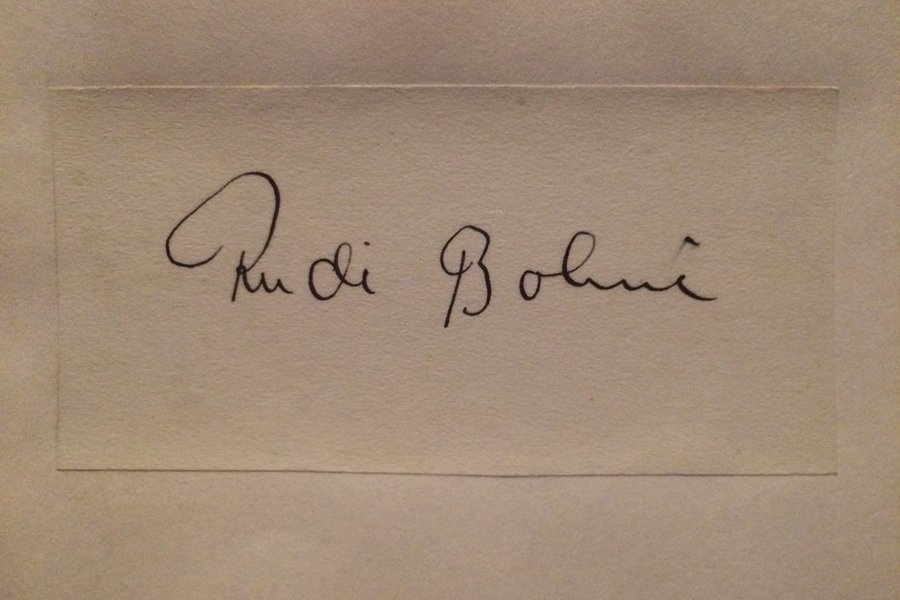 Rudi Bohni